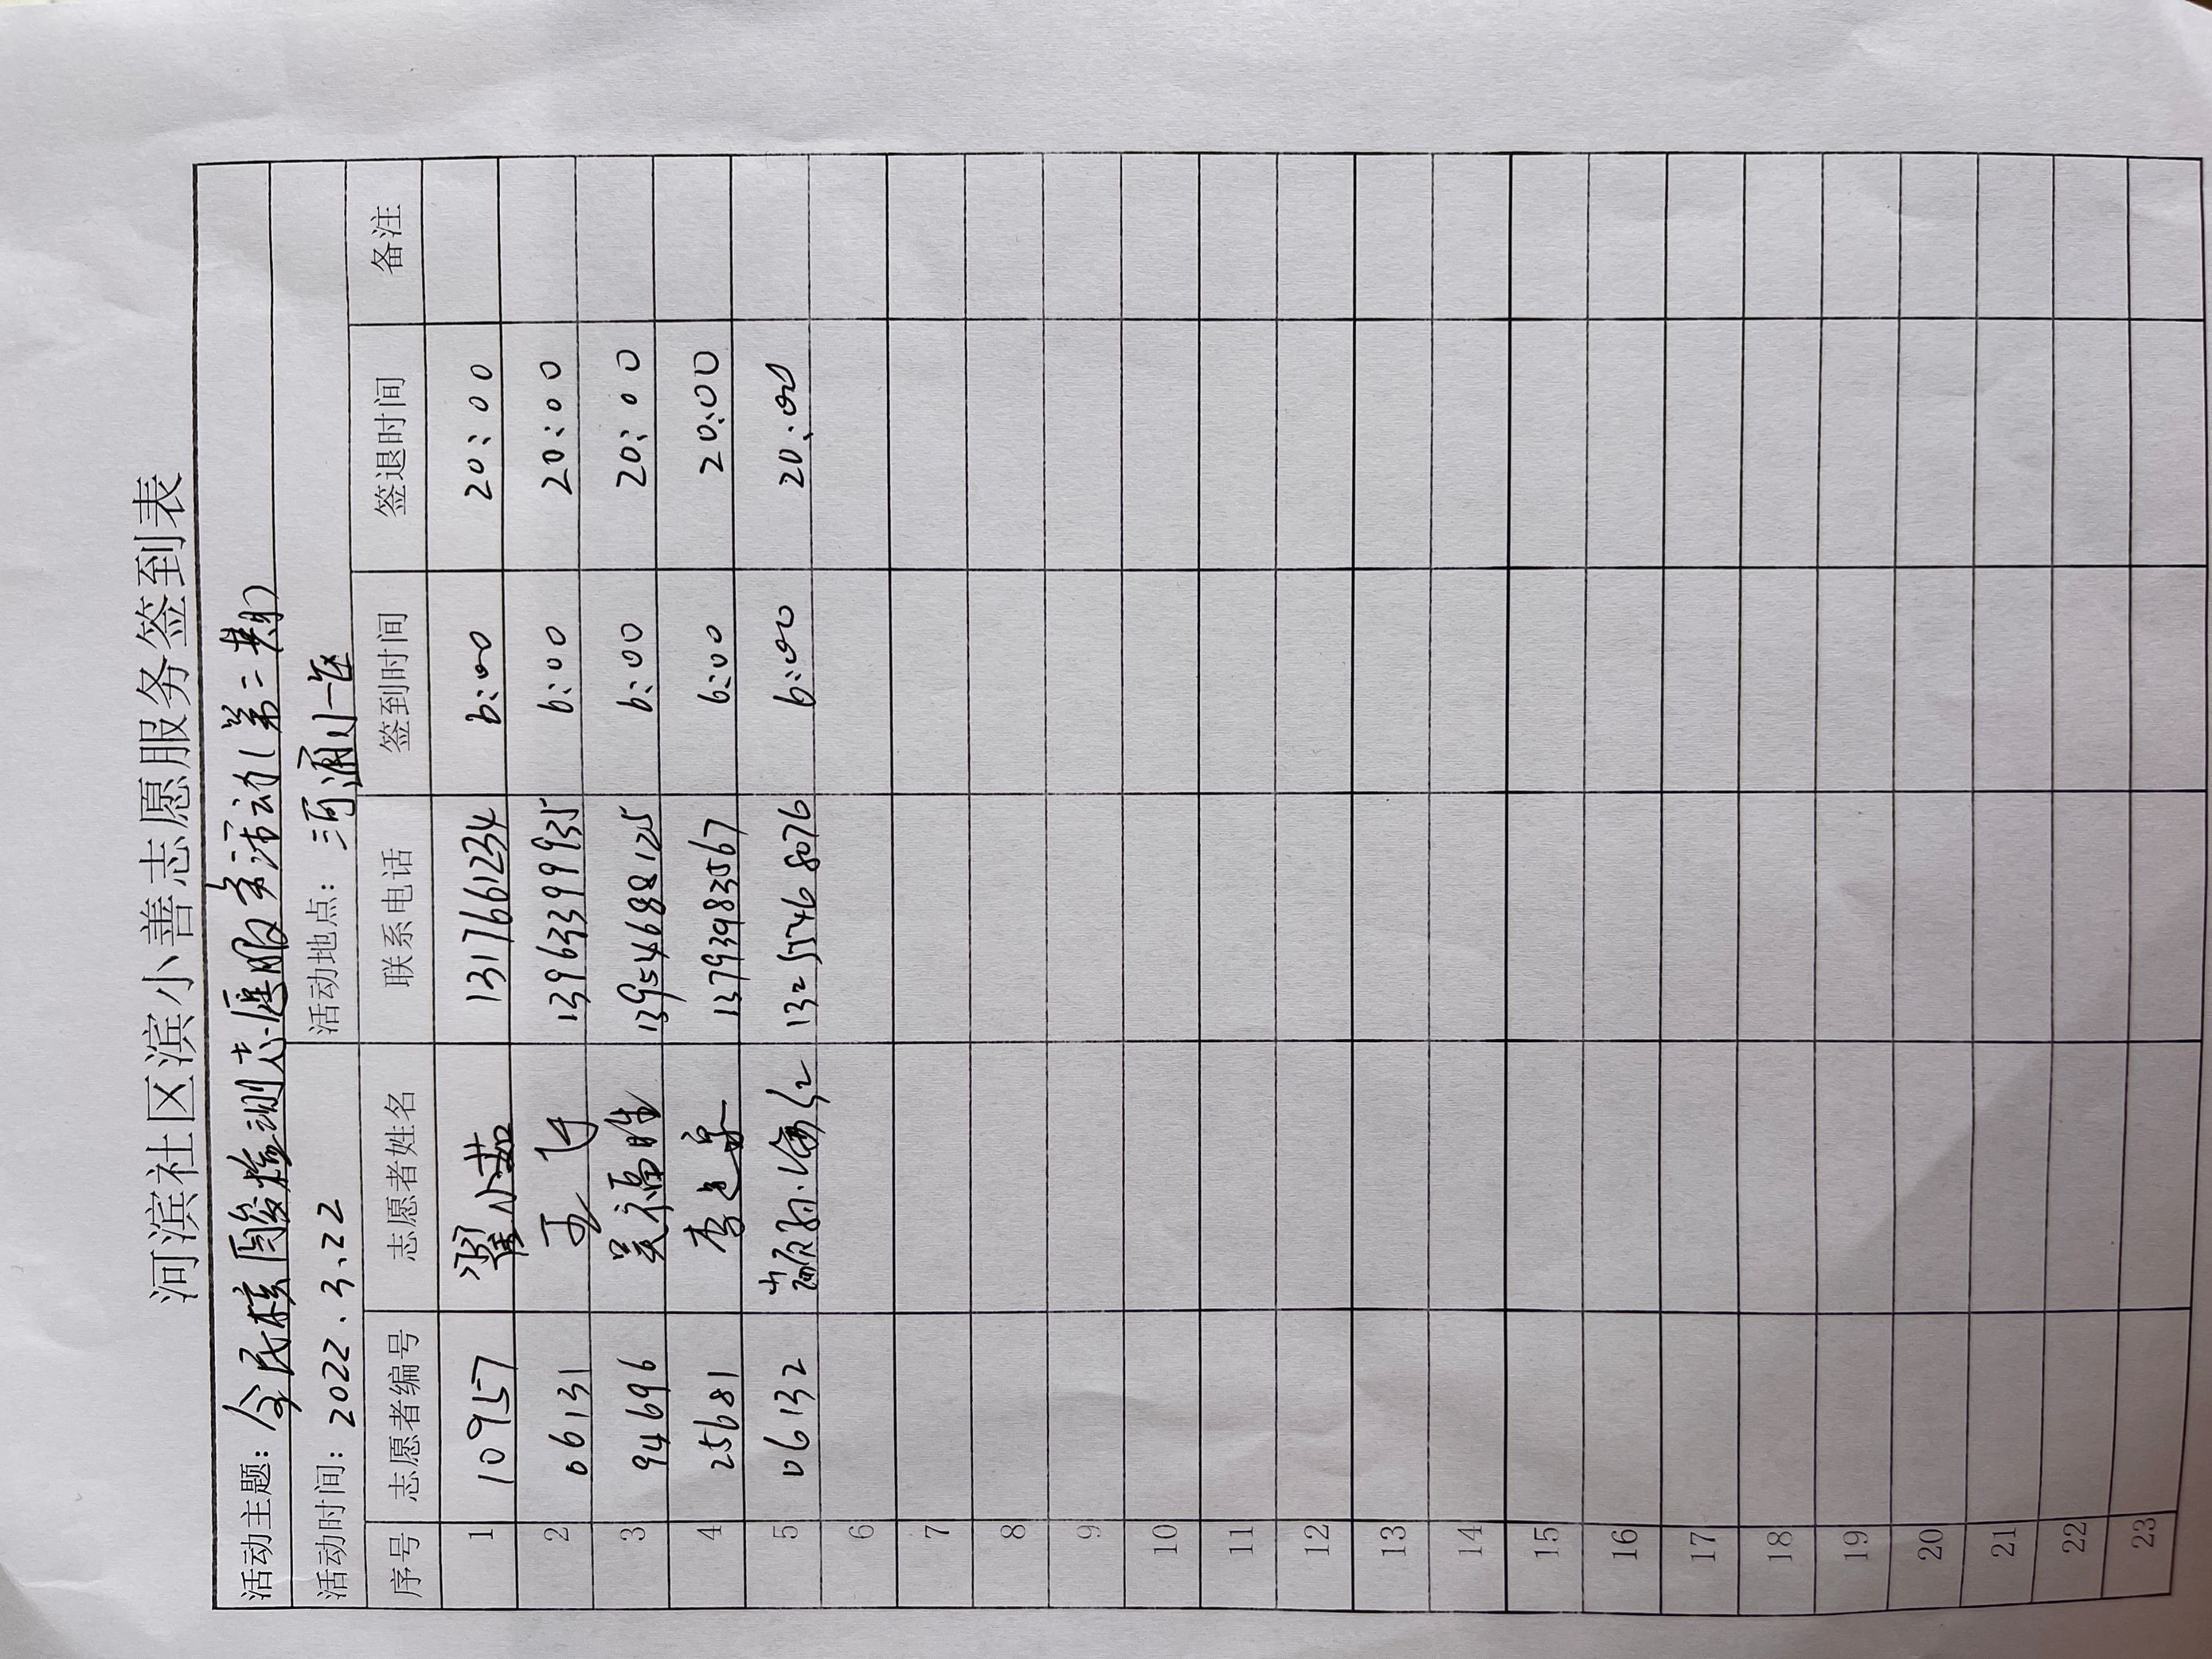 河滨社区滨小善志愿服务签到表
活动主题：全民核酸检测志愿服务活动（第二期）
活动时间：2022.3.22 活动地点：河通小区
序号 志愿者编号 志愿者姓名 联系电话 签到时间 签退时间 备注
1 10957 翟小茹 13176661234 6:00 20:00
2 06131 王飞 13963399935 6:00 20:00
3 94696 吴福胜 13954688125 6:00 20:00
4 25681 李 13793983567 6:00 20:00
5 06132 13255468076 6:00 20:00
6
7
8
9
10
11
12
13
14
15
16
17
18
19
20
21
22
23